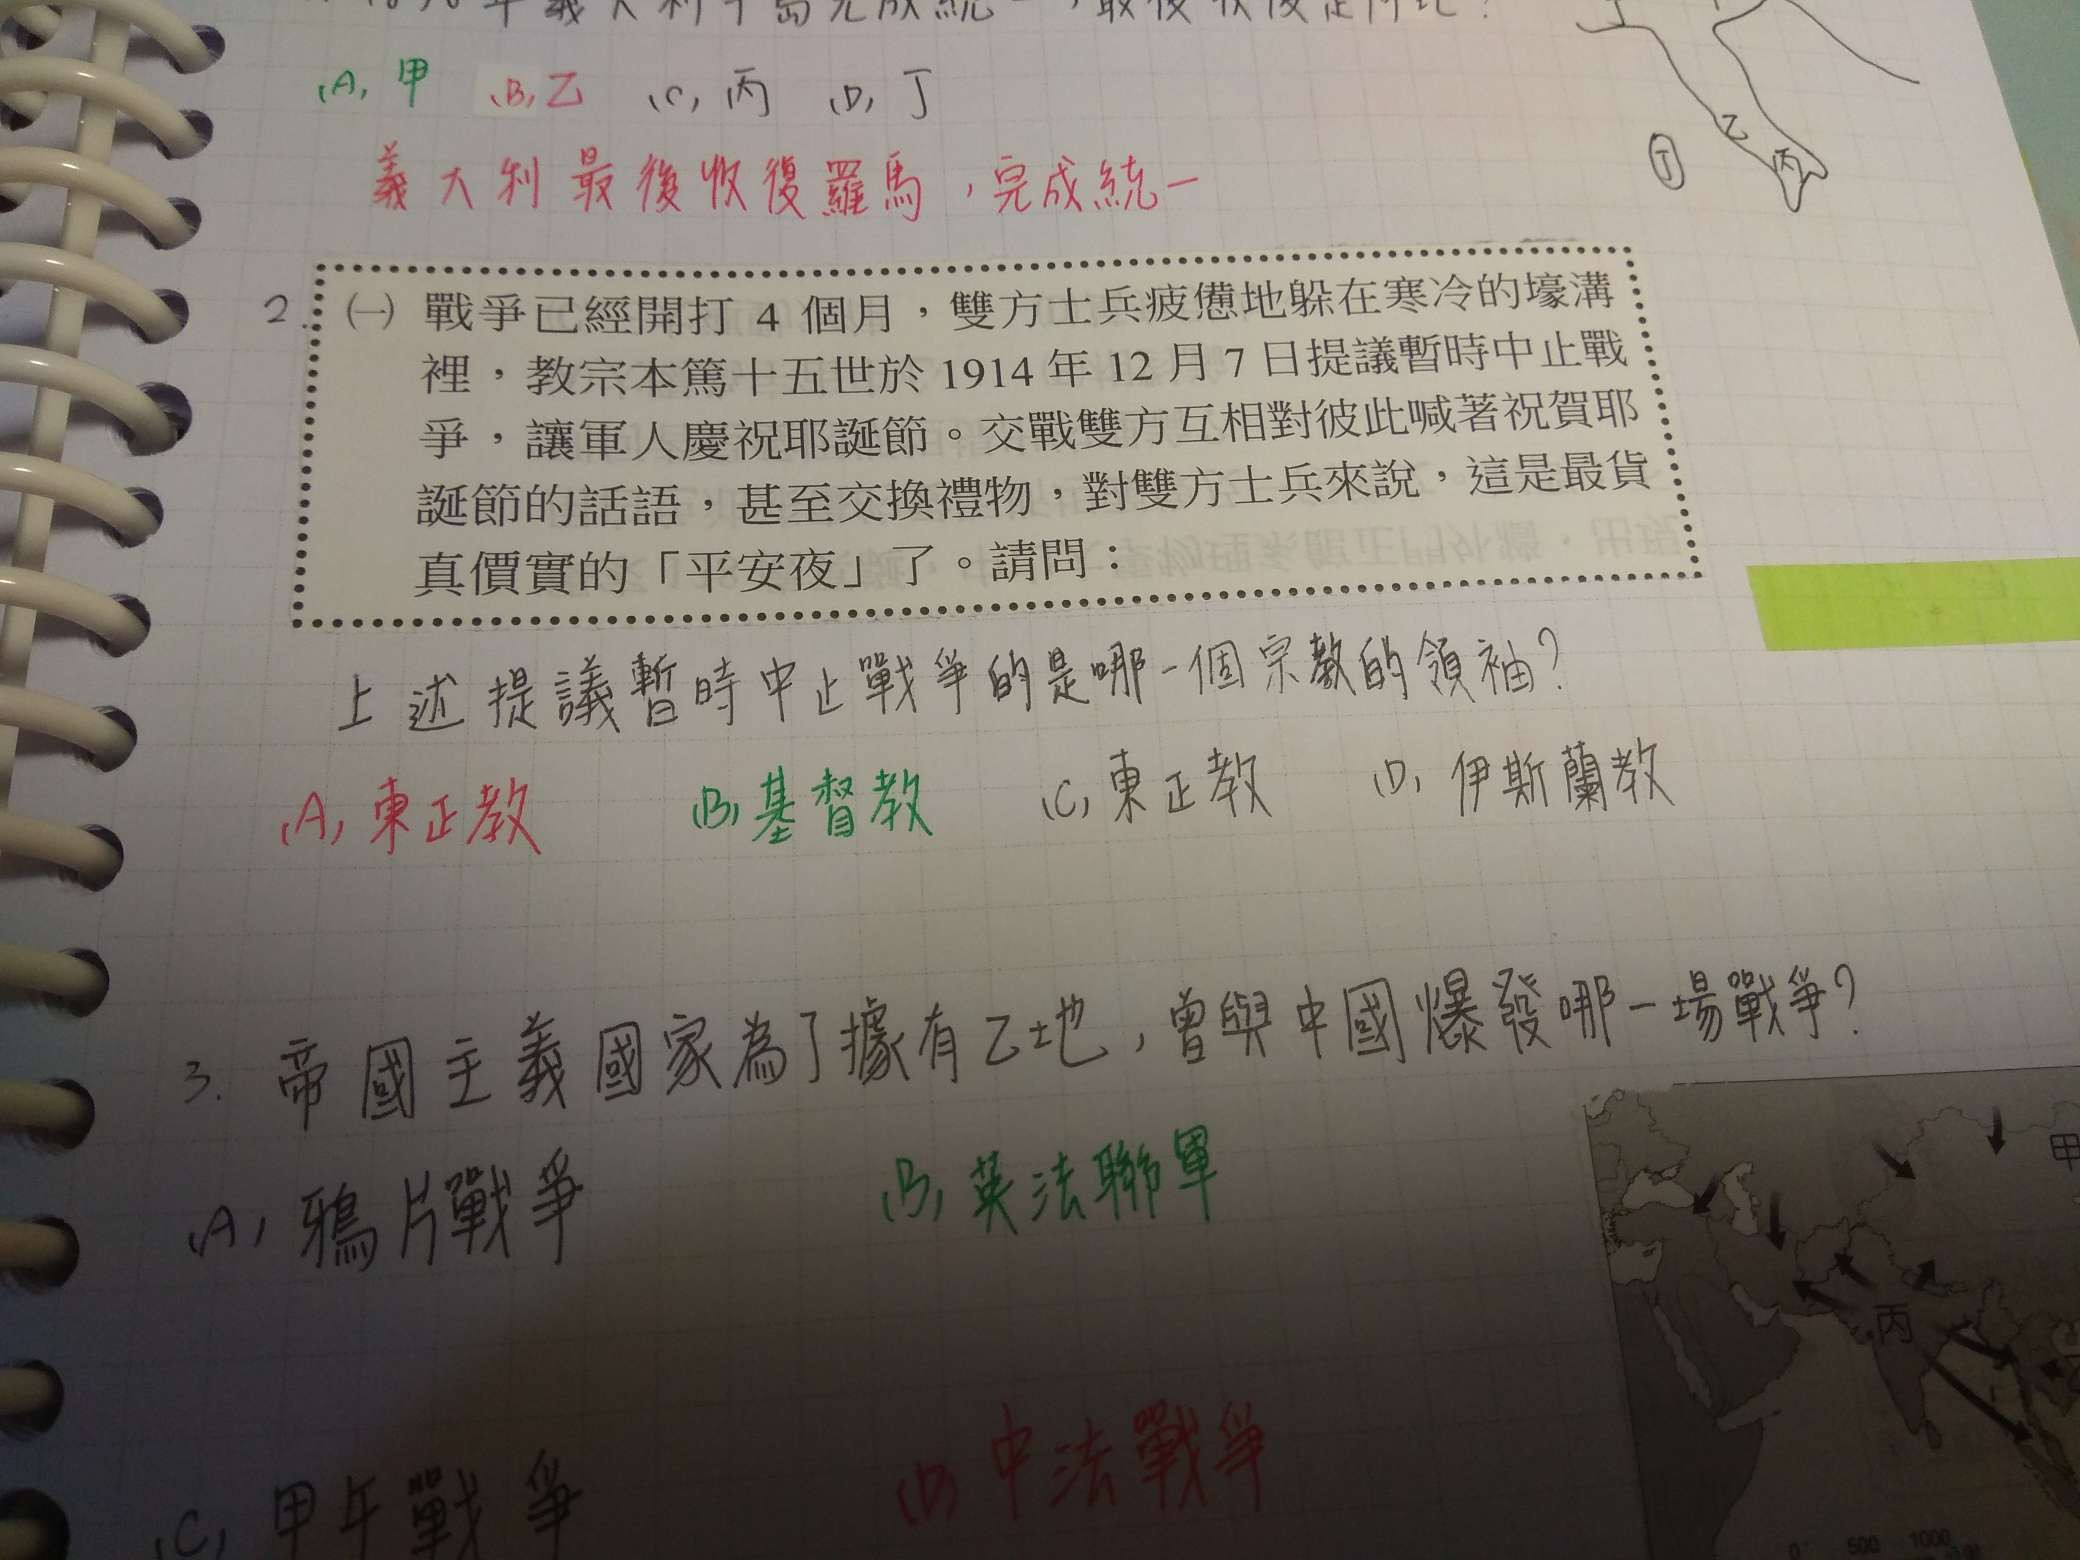 年義大利半島完成統一,最後收復是何地?
(A) 甲 (B) 乙 (C) 丙 (D) 丁
義大利最後收復羅馬,完成統一
乙
丙
丁
2. ㈠ 戰爭已經開打 4 個月,雙方士兵疲憊地躲在寒冷的壕溝
裡,教宗本篤十五世於 1914 年 12 月 7 日提議暫時中止戰
爭,讓軍人慶祝耶誕節。交戰雙方互相對彼此喊著祝賀耶
誕節的話語,甚至交換禮物,對雙方士兵來說,這是最貨
真價實的「平安夜」了。請問:
上述提議暫時中止戰爭的是哪一個宗教的領袖?
(A) 東正教 (B) 基督教 (C) 東正教 (D) 伊斯蘭教
3. 帝國主義國家為了據有乙地,曾與中國爆發哪一場戰爭?
(A) 鴉片戰爭 (B) 英法聯軍
(C) 甲午戰爭 (D) 中法戰爭
甲
丙
0 500 1000